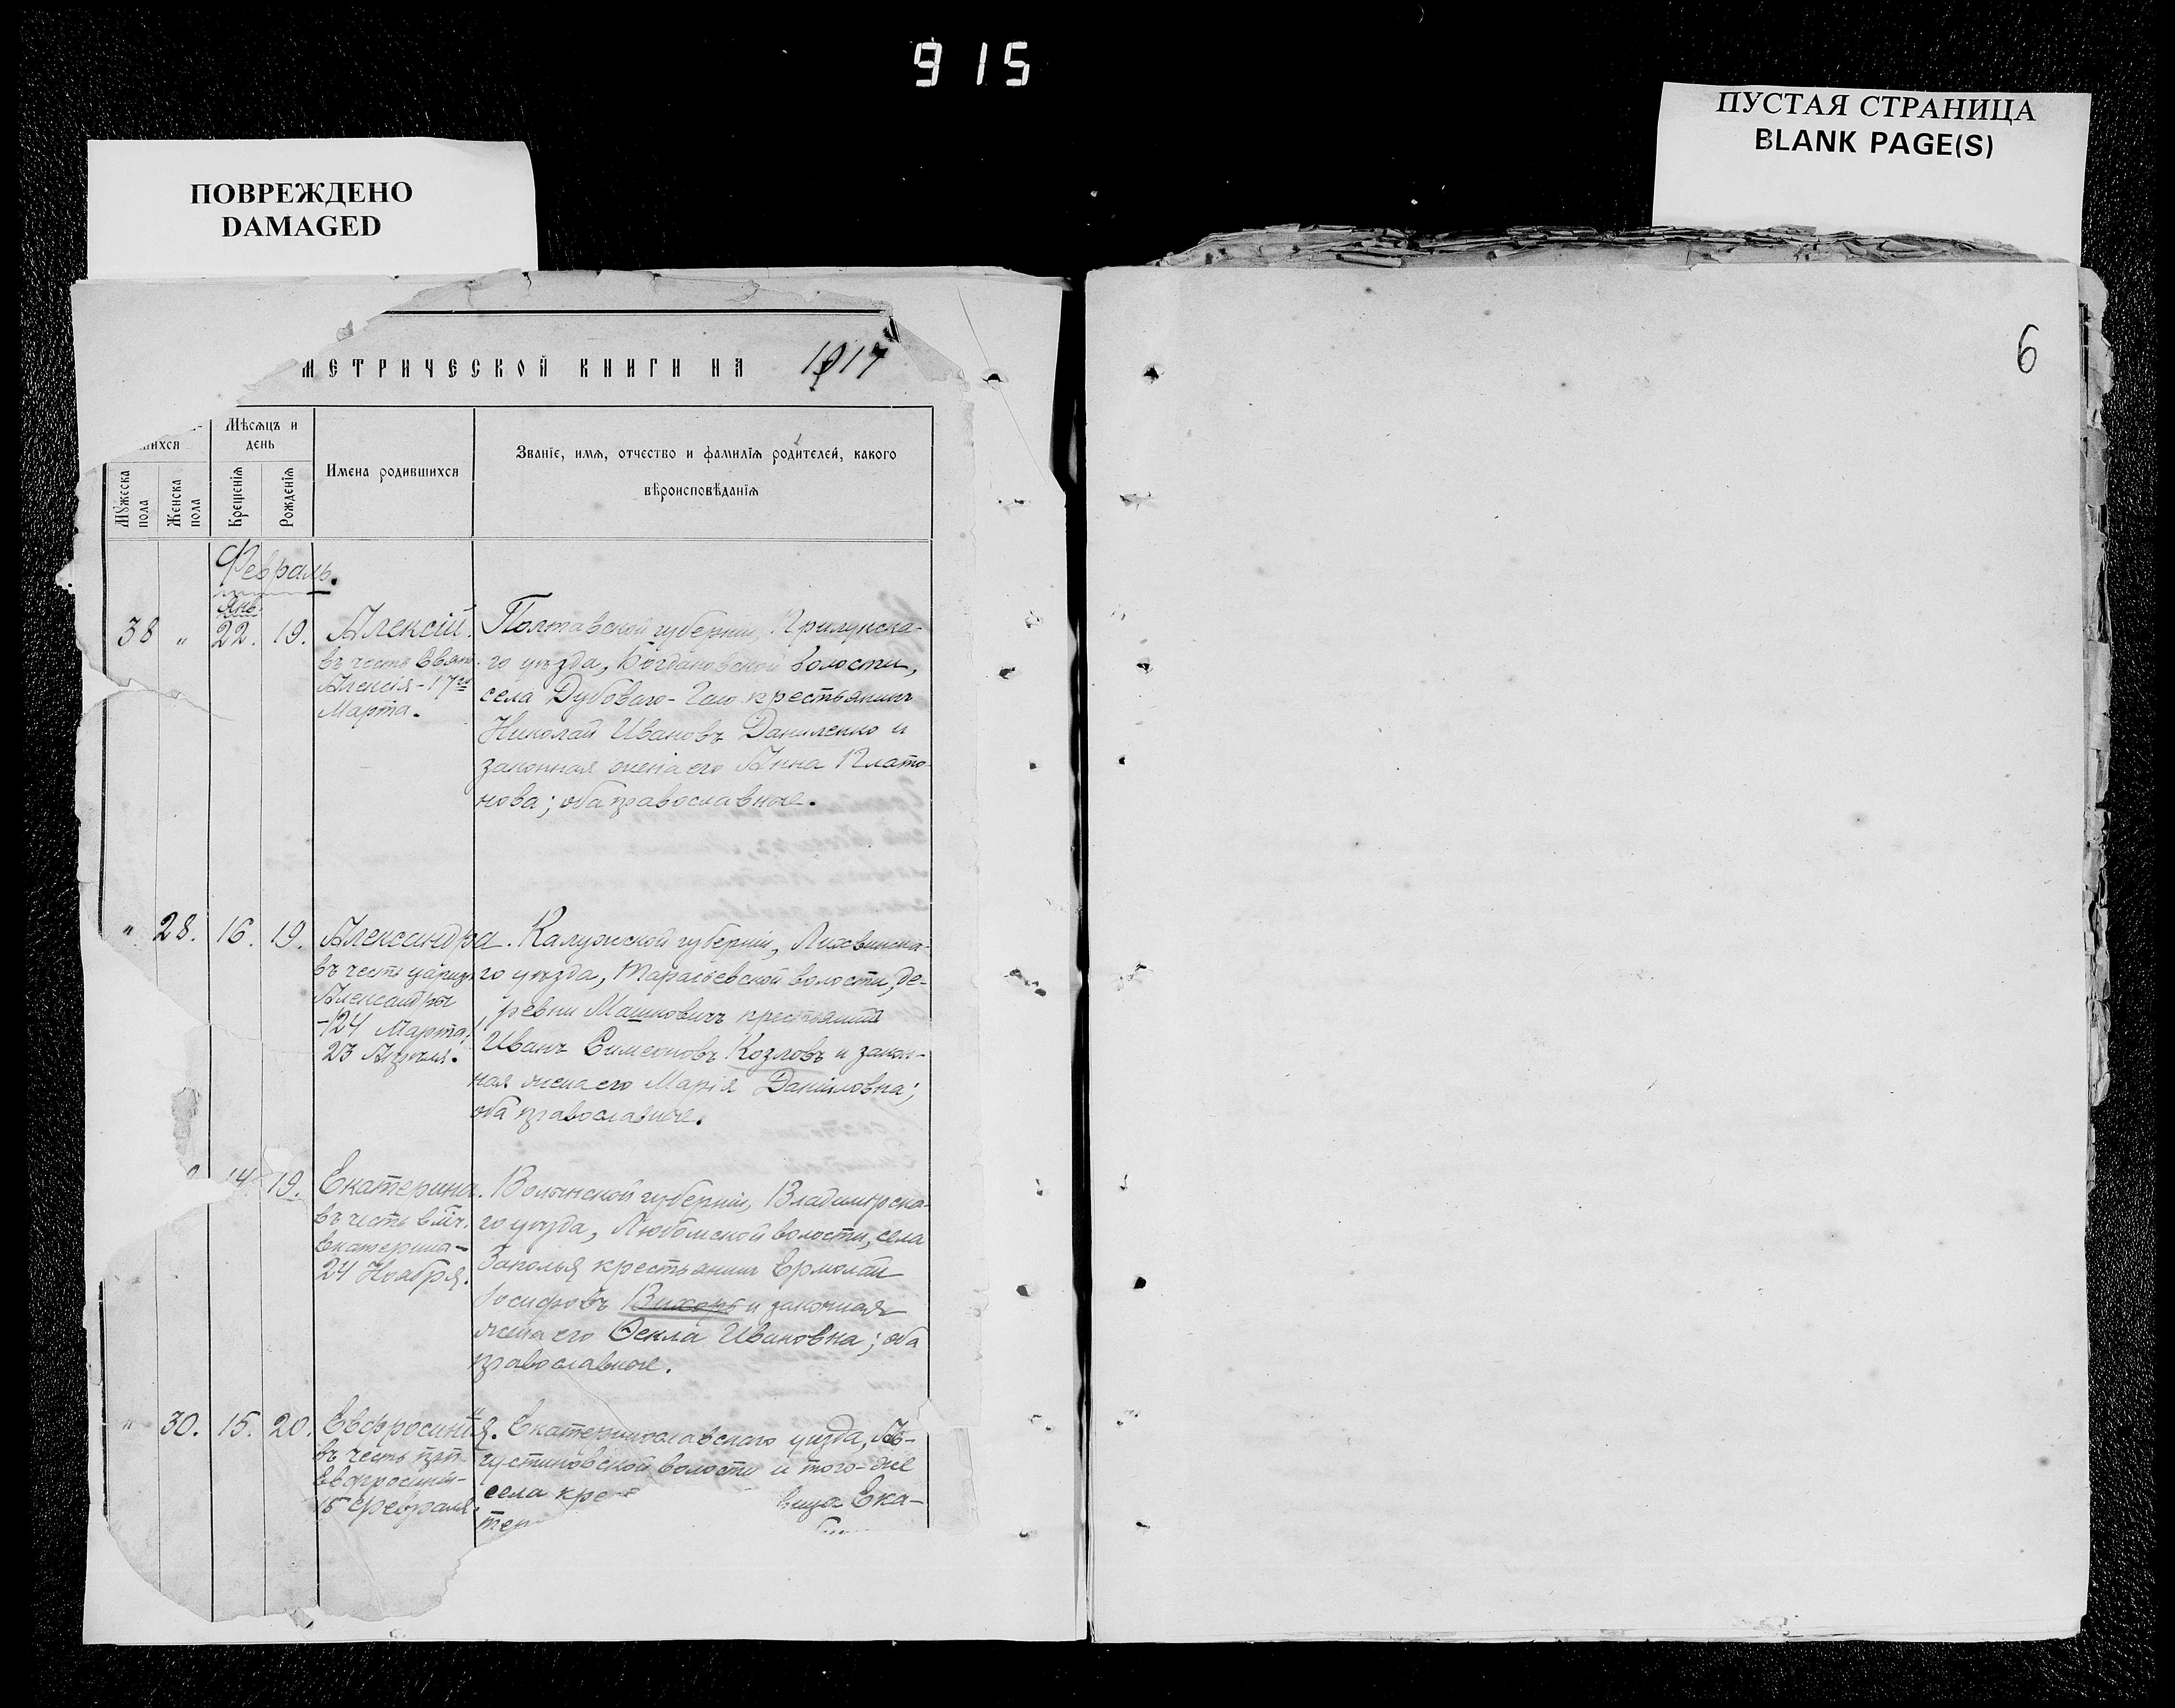 915
ПОВРЕЖДЕНО
DAMAGED
ПУСТАЯ СТРАНИЦА
BLANK PAGE(S)
6
МЕТРИЧЕСКОЙ КНИГИ НА 1917
шихся
Мѣсяцъ и
день
Мужеска
пола
Женска
пола
Крещенія
Рожденія
Имена родившихся
Званіе, имя, отчество и фамилія родителей, какого
вѣроисповѣданія
Февраль.
Янв.
38 " 22. 19. Алексій. Полтавской губерніи, Прилукска-
въ честь Свят. го уѣзда, Богдановской волости,
Алексія - 17го села Дубоваго-Гаю крестьянинъ
Марта. Николай Ивановъ Даниленко и
законная жена его Анна Плато-
нова; оба православные.
" 28. 16. 19. Александра. Калужской губерніи, Лихвинска-
въ честь цариц. го уѣзда, волости, де-
Александры ревни Машковичъ крестьянинъ
23 Апрѣля. Иванъ Симеоновъ Козловъ и закон-
ная жена его Марія Даніиловна;
оба православные.
14 19. Екатерина. Волынской губерніи, Владимірска-
въ честь вмч. го уѣзда, Любомской волости, села
Екатерины - Заполья крестьянинъ Ермолай
24 Ноября. Іосифовъ Вихорь и законная
жена его Ѳекла Ивановна; оба
православные.
" 30. 15. 20. Евфросинія. Екатеринославскаго уѣзда, Ав-
въ честь прп. густиновской волости и того-же
Евфросиніи - села кре вица Ека-
15 Февраля. тер